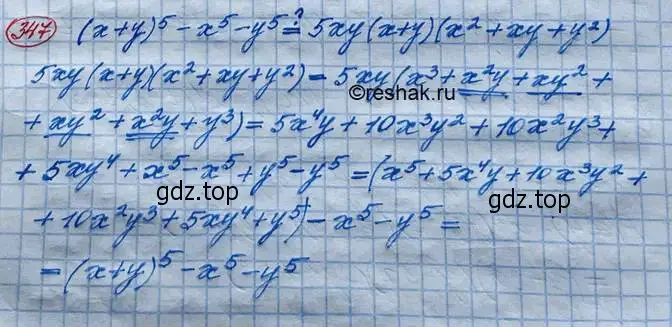 347 (x+y)⁵ - x⁵ - y⁵ ≟ 5xy(x+y)(x²+xy+y²)
5xy(x+y)(x²+xy+y²) = 5xy(x³+x²y+xy²+
©reshak.ru
+xy²+x²y+y³) = 5x⁴y+10x³y²+10x²y³+
+5xy⁴+x⁵-x⁵+y⁵-y⁵ = (x⁵+5x⁴y+10x³y²+
gdz.top gdz.top
+10x²y³+5xy⁴+y⁵)-x⁵-y⁵ =
= (x+y)⁵-x⁵-y⁵